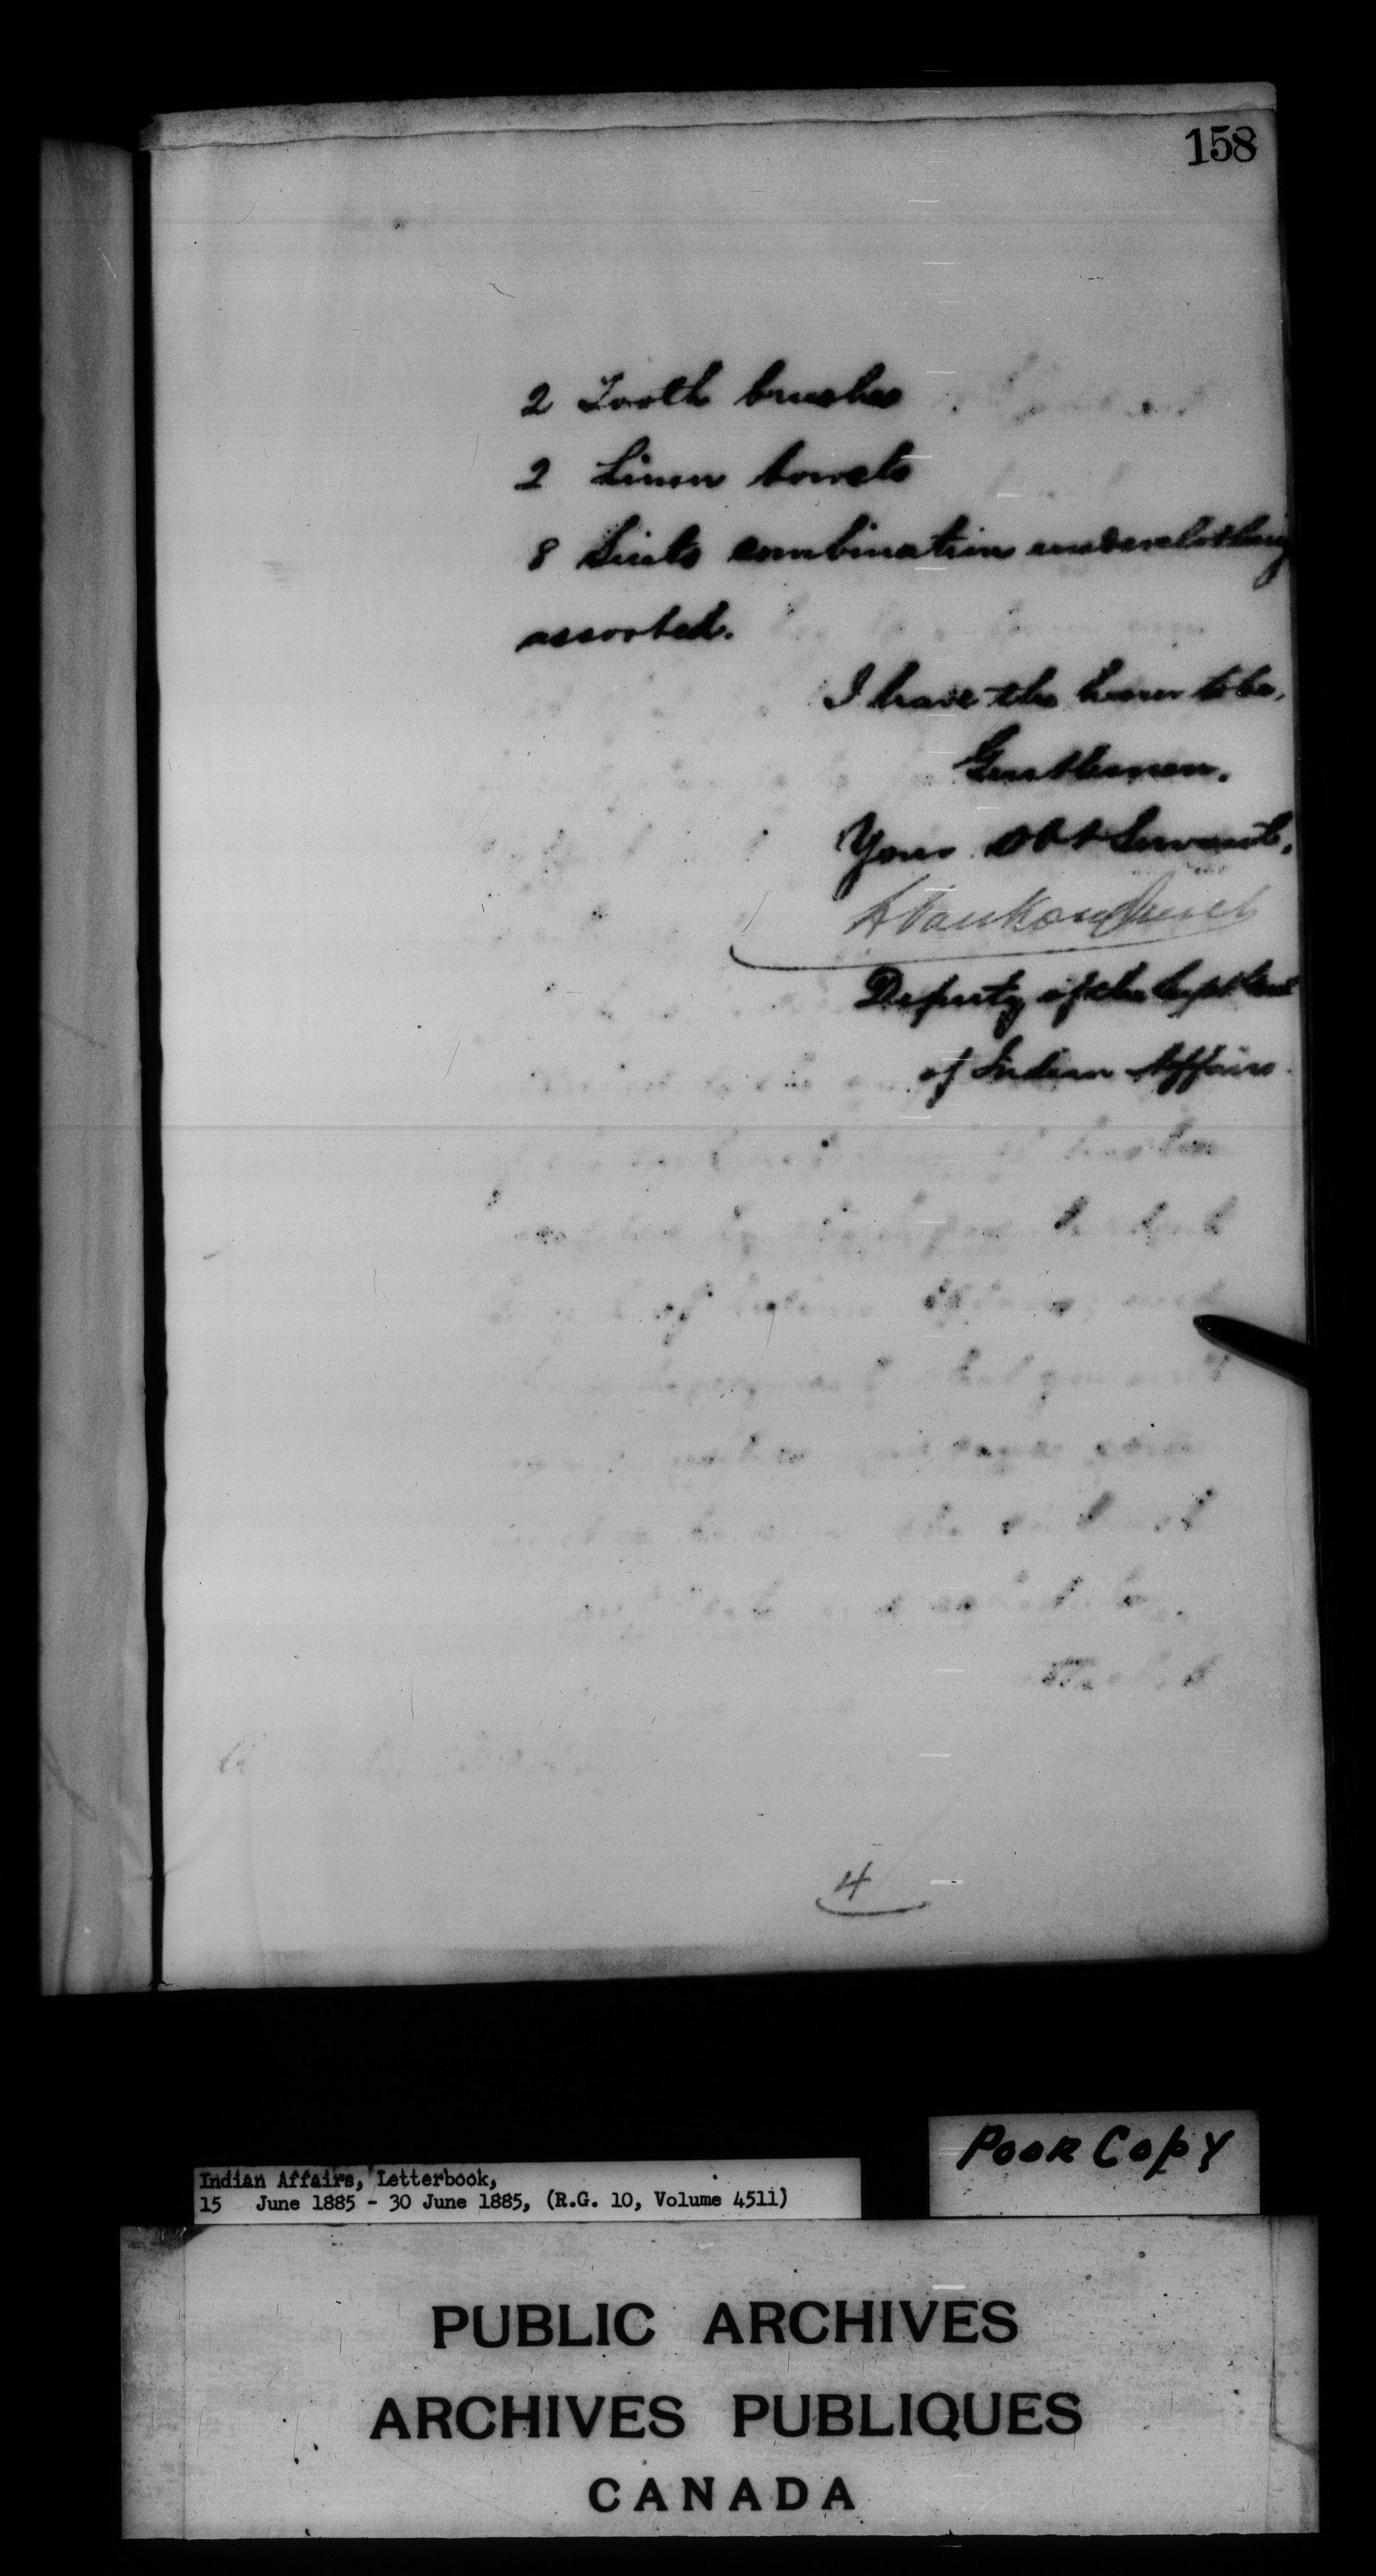 158
2 Tooth brushes
2 Linen towels
8 Suits combination underclothing
assorted.
I have the honor to be,
Gentlemen,
Your Obt Servant,
L Vankoughnet
Deputy of the Supt Genl
of Indian Affairs.
4
Poor Copy
Indian Affairs, Letterbook,
15 June 1885 - 30 June 1885, (R.G. 10, Volume 4511)
PUBLIC ARCHIVES
ARCHIVES PUBLIQUES
CANADA